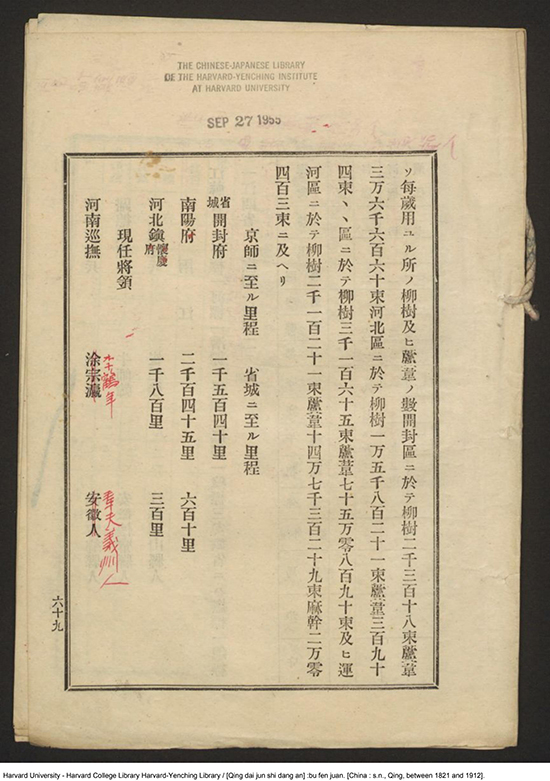 THE CHINESE-JAPANESE LIBRARY
OF THE HARVARD-YENCHING INSTITUTE
AT HARVARD UNIVERSITY
SEP 27 1955
ソ每歲用ユル所ノ柳樹及ヒ蘆葦ノ數開封區ニ於テ柳樹二千三百十八束蘆葦
三万六千六百六十束河北區ニ於テ柳樹一万五千八百二十一束蘆葦三百九十
四束ヽヽ區ニ於テ柳樹三千一百六十五束蘆葦七十五万零八百九十束及ヒ運
河區ニ於テ柳樹二千一百二十一束蘆葦十四万七千三百二十九束麻幹二万零
四百三束ニ及ヘリ
京師ニ至ル里程 省城ニ至ル里程
省城開封府 一千五百四十里
南陽府 二千百四十五里 六百十里
河北鎭懷慶府 一千八百里 三百里
現任將領
河南巡撫 涂宗瀛 安徽人
鶴年 義州人
六十九
Harvard University - Harvard College Library Harvard-Yenching Library / [Qing dai jun shi dang an] :bu fen juan. [China : s.n., Qing, between 1821 and 1912].